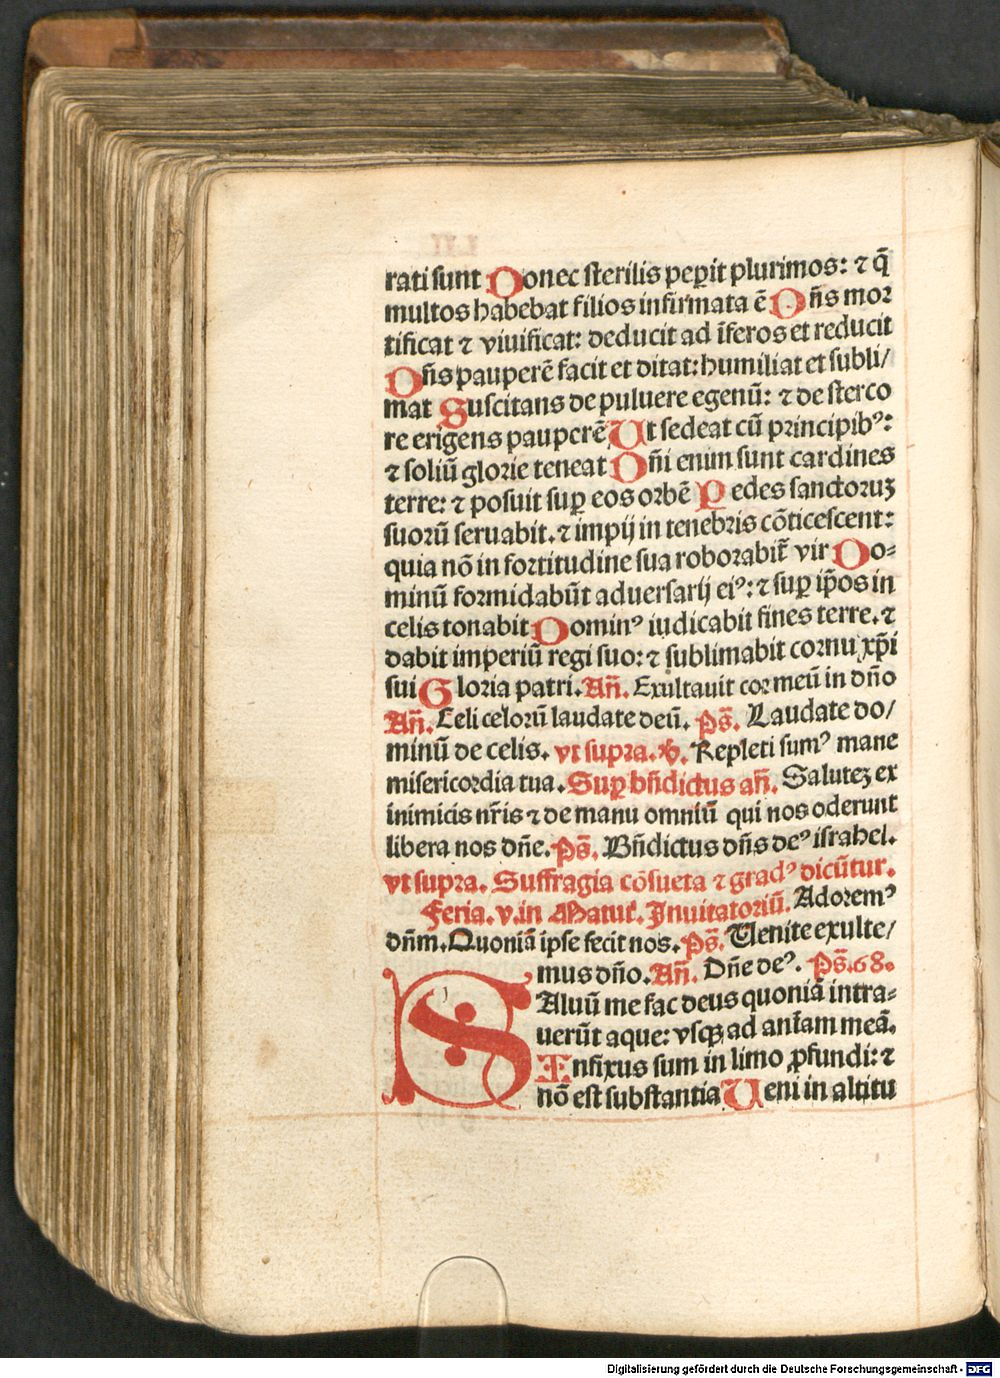 rati sunt Donec sterilis peꝑit plurimos: ⁊ q̄
multos habebat filios infirmata ē Dn̄s mor
tificat ⁊ viuificat: deducit ad īferos et reducit
Dn̄s pauperē facit et ditat: humiliat et subli/
mat Suscitans de puluere egenū: ⁊ de sterco
re erigens pauperē Ut sedeat cū principibꝰ:
⁊ soliū glorie teneat Dn̄i enim sunt cardines
terre: ⁊ posuit suꝑ eos orbē Pedes sanctoruꝫ
suorū seruabit. ⁊ impij in tenebris cōticescent:
quia nō in fortitudine sua roborabit̄ vir Do-
minū formidabūt aduersarij eiꝰ: ⁊ suꝑ ip̄os in
celis tonabit Dominꝰ iudicabit fines terre. ⁊
dabit imperiū regi suo: ⁊ sublimabit cornu xp̄i
sui Gloria patri. Añ. Exultauit cor meū in dn̄o
Añ. Celi celorū laudate deū. Ps̄. Laudate do/
minū de celis. vt supra. ꝟ. Repleti sumꝰ mane
misericordia tua. Suꝑ bn̄dictus añ. Saluteꝫ ex
inimicis nr̄is ⁊ de manu omniū qui nos oderunt
libera nos dn̄e. Ps̄. Bn̄dictus dn̄s deꝰ israhel.
vt supra. Suffragia cōsueta ⁊ gradꝰ dicūtur.
Feria. v. in Matut̄. Inuitatoriū. Adoremꝰ
dn̄m. Quoniā ipse fecit nos. Ps̄. Uenite exulte/
mus dn̄o. Añ. Dn̄e deꝰ. Ps̄. 68.
Saluū me fac deus quoniā intra-
uerūt aque: vsqꝫ ad anīam meā.
Infixus sum in limo ꝓfundi: ⁊
nō est substantia Ueni in altitu
Digitalisierung gefördert durch die Deutsche Forschungsgemeinschaft - DFG